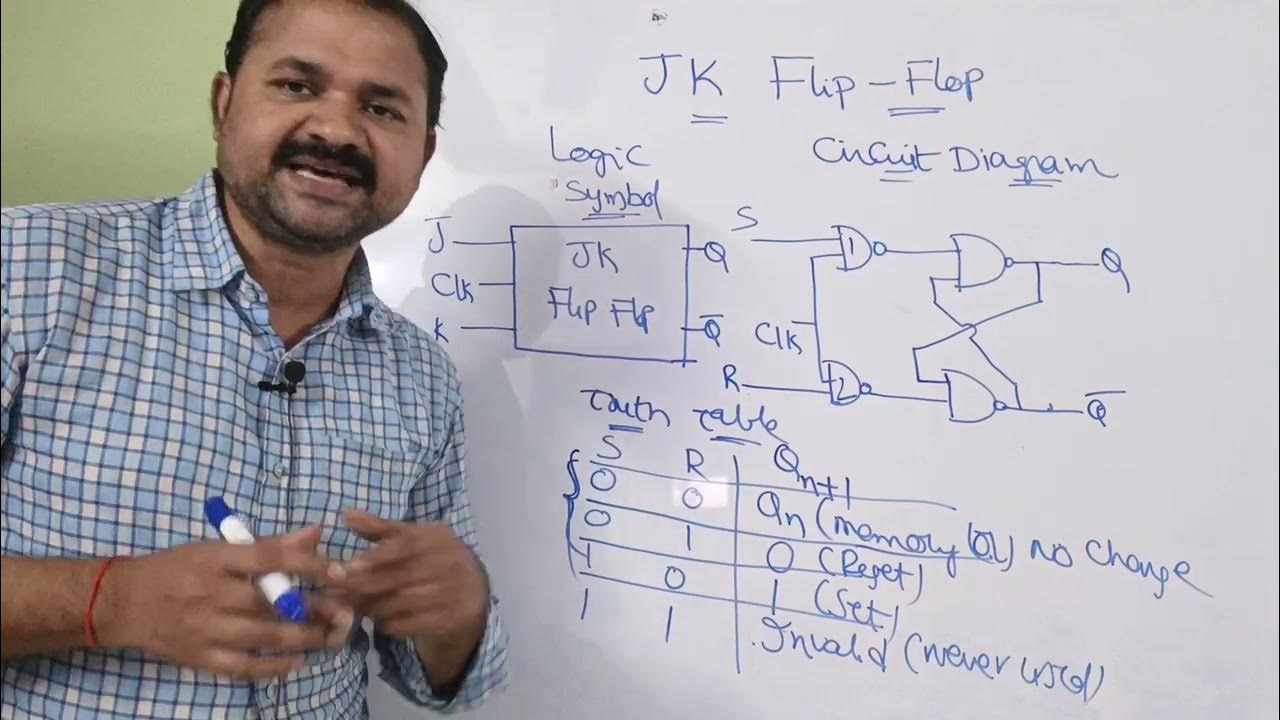 JK Flip-Flop
Logic
Symbol
Circuit Diagram
J
Clk
K
JK
Flip Flp
Q
Q̅
S
1
Clk
R
2
Q
Q̅
Truth Table
S R Qn+1
0 0 Qn (memory (or) no change
0 1 0 (Reset)
1 0 1 (Set)
1 1 Invalid (never used)